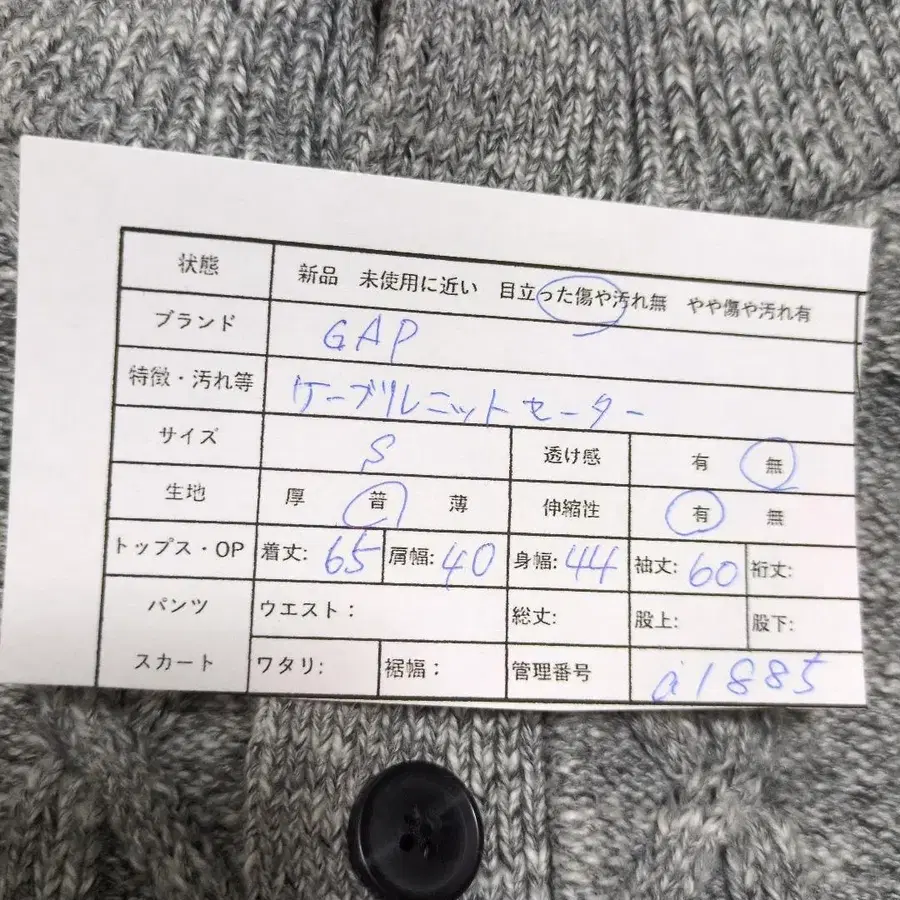 状態 新品 未使用に近い 目立った傷や汚れ無 やや傷や汚れ有
ブランド GAP
特徴・汚れ等 ケーブルニットセーター
サイズ S 透け感 有 無
生地 厚 普 薄 伸縮性 有 無
トップス・OP 着丈: 65 肩幅: 40 身幅: 44 袖丈: 60 裄丈:
パンツ ウエスト: 総丈: 股上: 股下:
スカート ワタリ: 裾幅: 管理番号 a1885